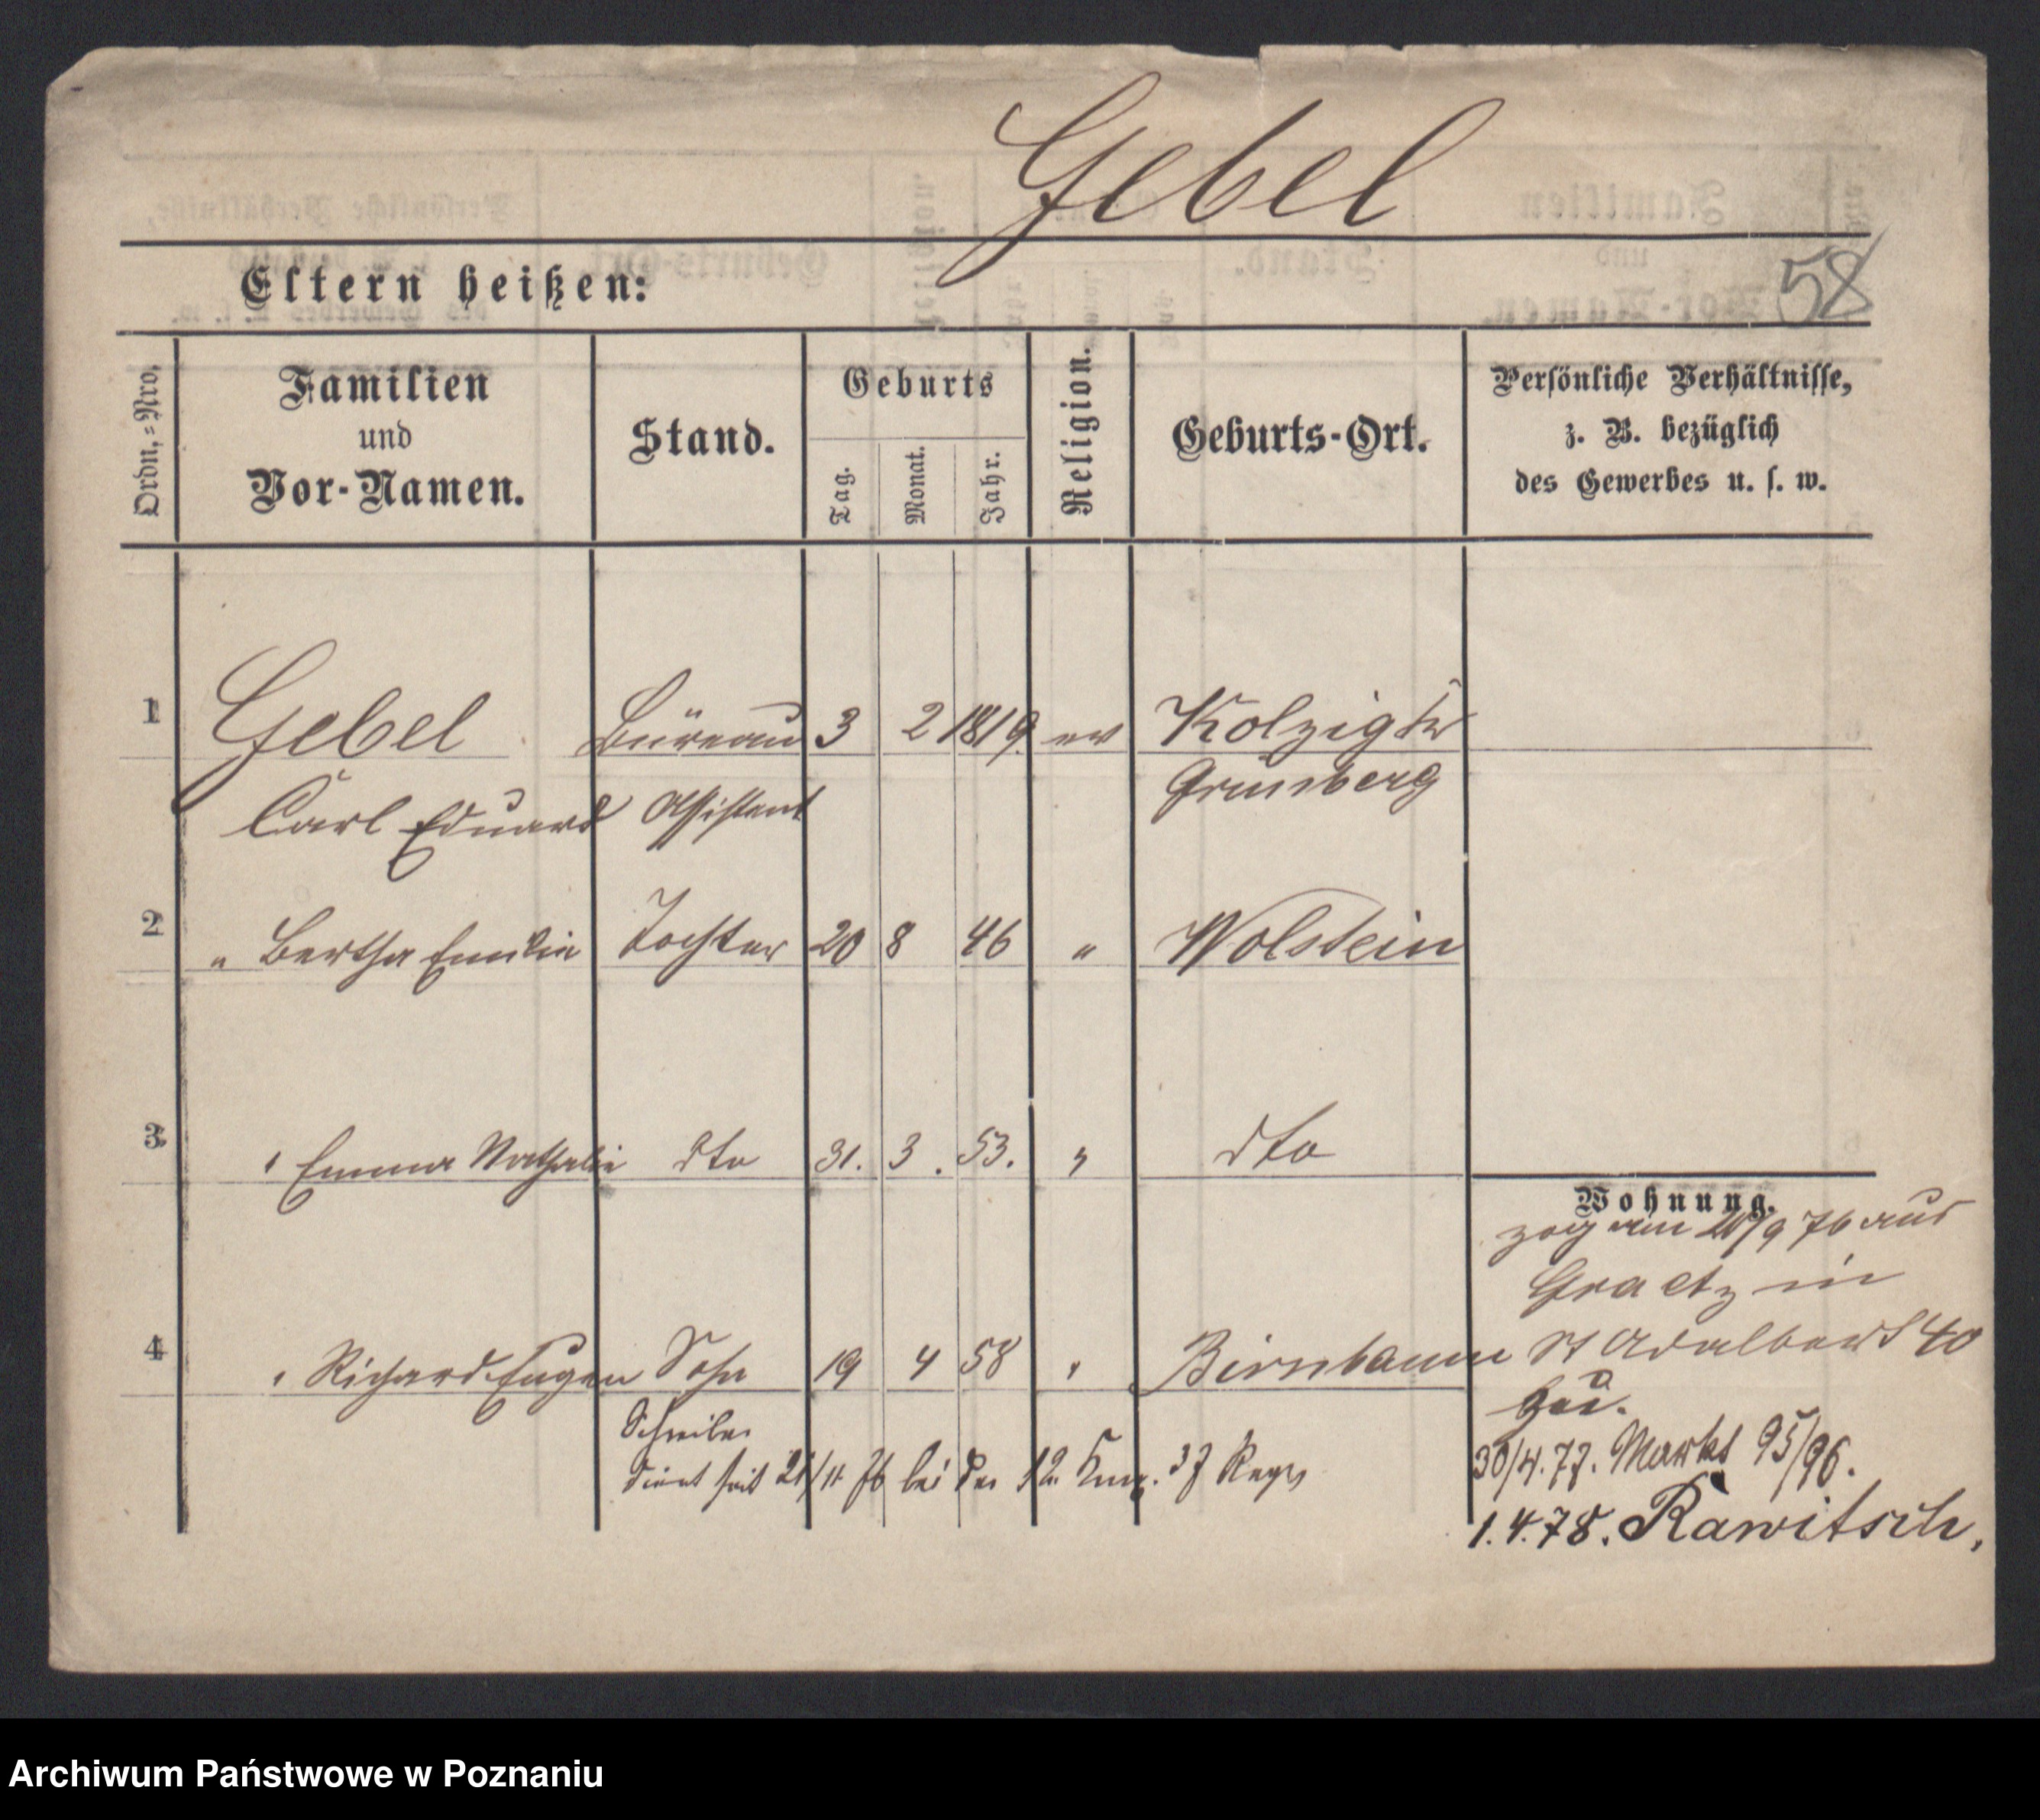 Gebel
58
Eltern heißen:
Ordn.-Nro.
Familien
und
Vor-Namen.
Stand.
Geburts
Tag.
Monat.
Jahr.
Religion.
Geburts-Ort.
Persönliche Verhältnisse,
z. B. bezüglich
des Gewerbes u. s. w.
1 Gebel Büreau 3 2 1819 ev Kolzig Kr
Carl Eduard Assistent Grünberg
2 " Bertha Emilie Tochter 20 8 46 " Wolstein
3 " Emma Nathalie dto 31. 3. 53. " dto
Wohnung.
zog am 20/9 76 aus
Graetz in
4 " Richard Eugen Sohn 19 4 58 " Birnbaum
St Adalbert 40
zu.
Schreiber
dient seit 21/11 76 bei der 12. Kmp. 37 Regts
30/4.77. Markt 95/96.
1.4.78. Rawitsch,
Archiwum Państwowe w Poznaniu